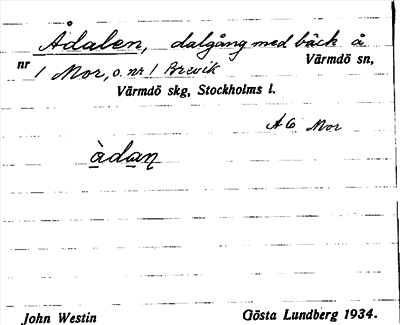 Ådalen, dalgång med bäck å
nr 1 Mor, o. nr 1 Brevik Värmdö sn,
Värmdö skg, Stockholms l.
A6 Mor
àdaṇ
John Westin Gösta Lundberg 1934.